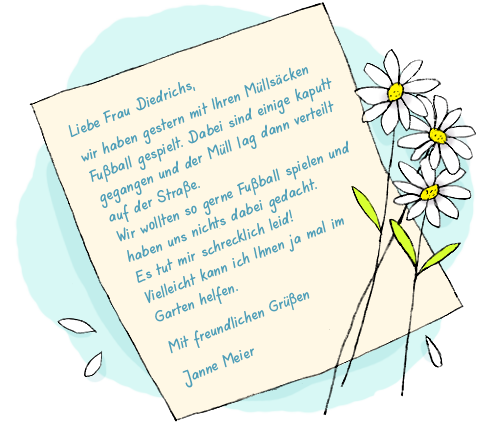 Liebe Frau Diedrichs,
wir haben gestern mit Ihren Müllsäcken
Fußball gespielt. Dabei sind einige kaputt
gegangen und der Müll lag dann verteilt
auf der Straße.
Wir wollten so gerne Fußball spielen und
haben uns nichts dabei gedacht.
Es tut mir schrecklich leid!
Vielleicht kann ich Ihnen ja mal im
Garten helfen.
Mit freundlichen Grüßen
Janne Meier